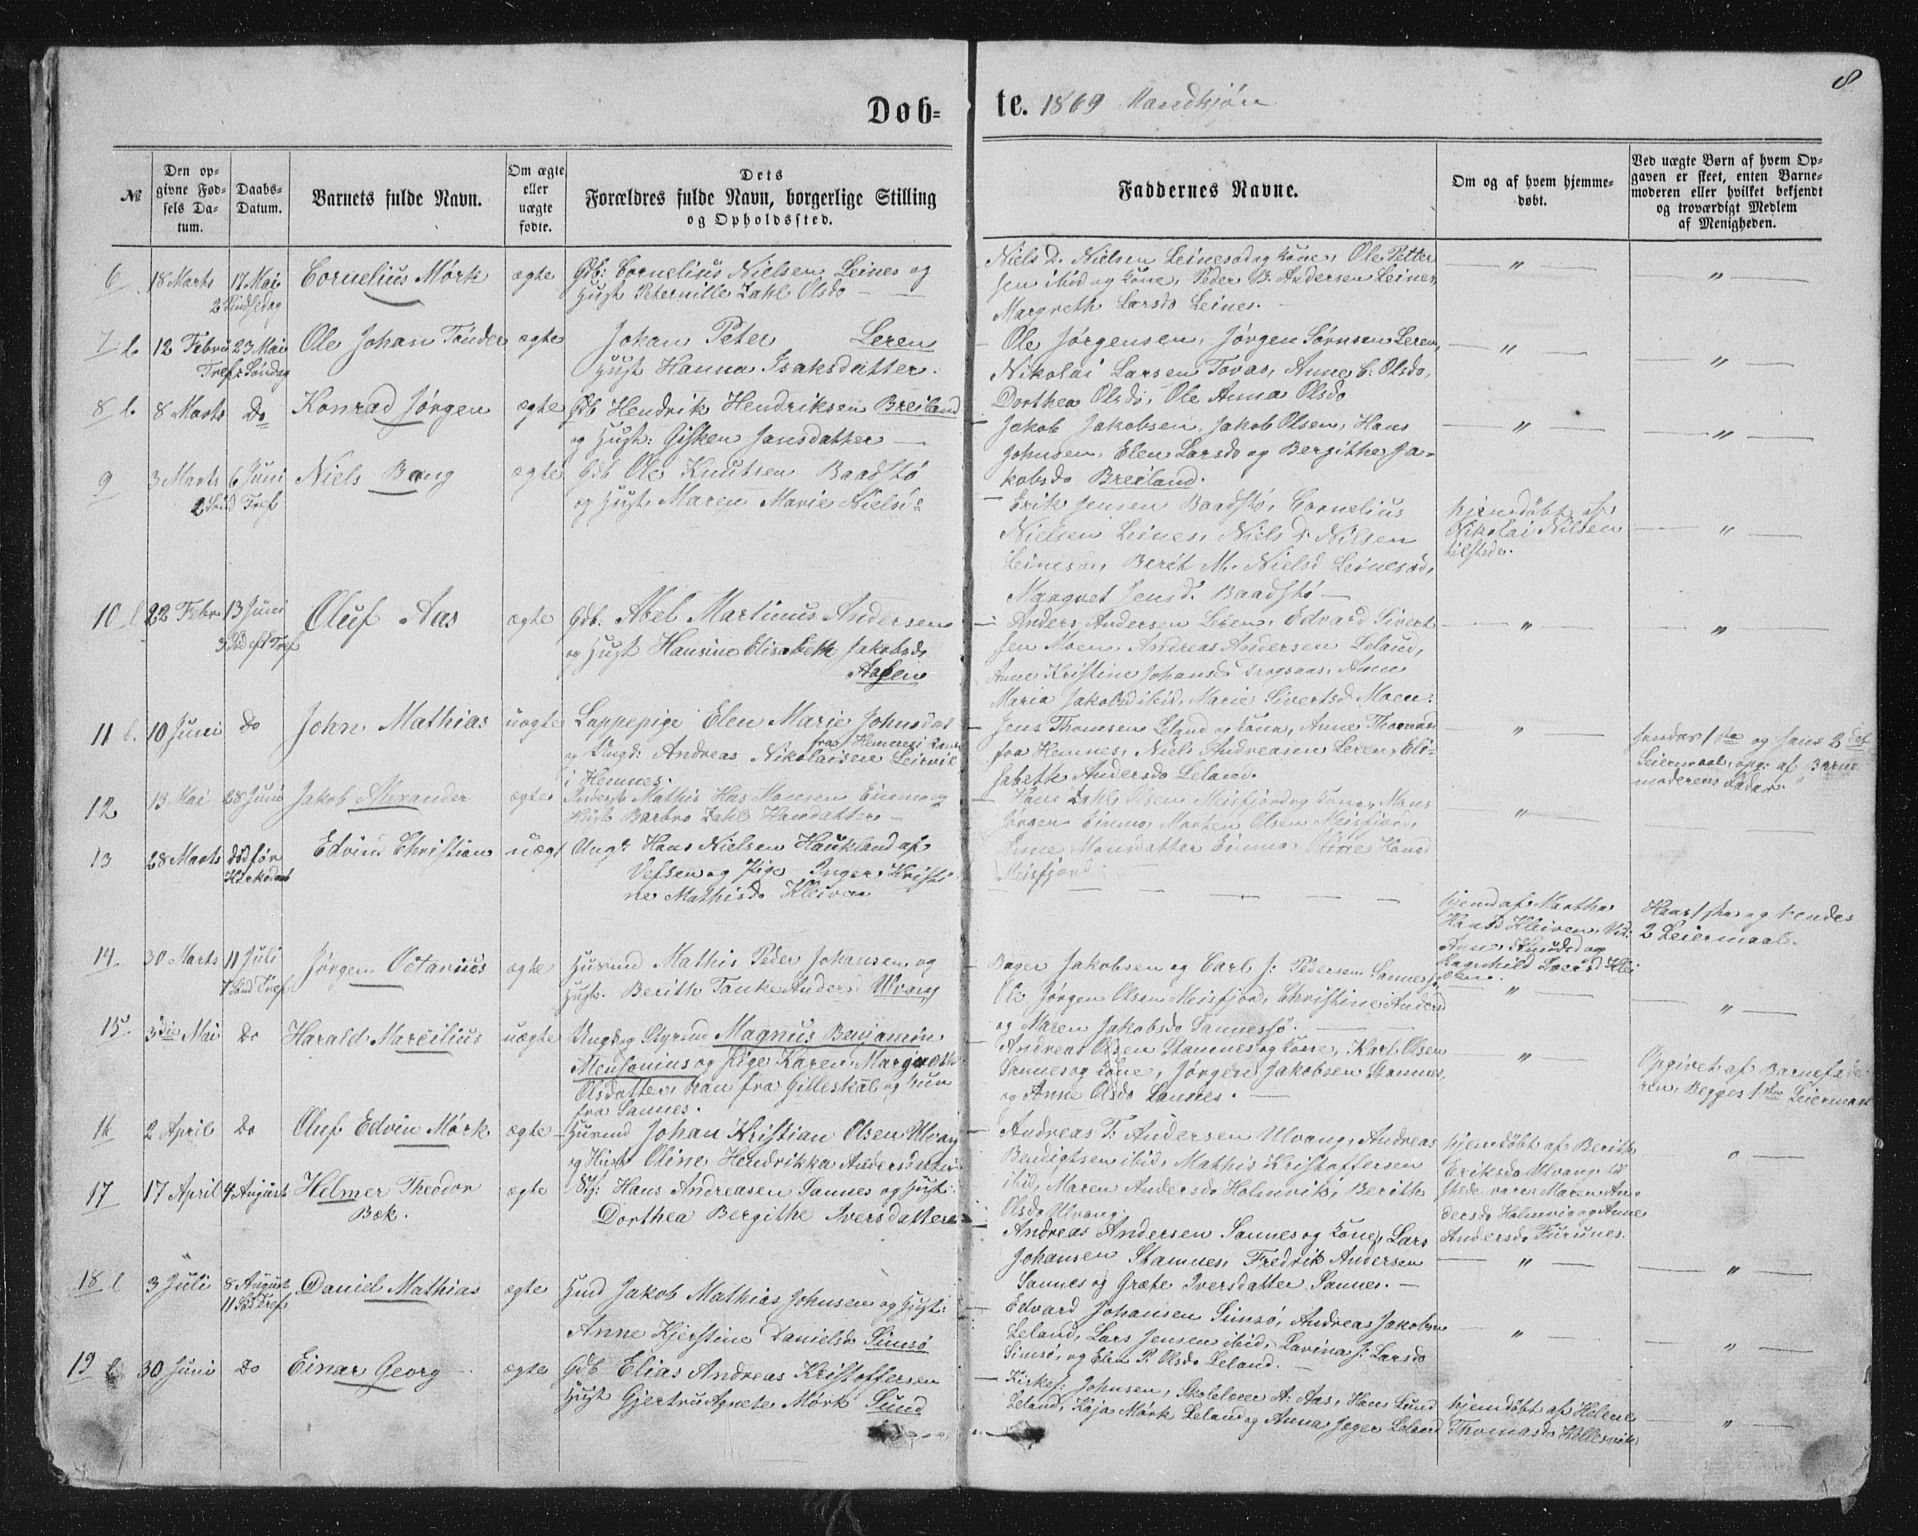 8
Døb=
te. 1869 Mandkjøn
№
Den op-
givne Fød-
sels Da-
tum.
Daabs-
Datum.
Barnets fulde Navn.
Om ægte
eller
uægte
fødte.
Dets
Forældres fulde Navn, borgerlige Stilling
og Opholdssted.
Faddernes Navne.
Om og af hvem hjemme-
døbt.
Ved uægte Børn af hvem Op-
gaven er skeet, enten Barne-
moderen eller hvilket bekjendt
og troværdigt Medlem
af Menigheden.
6 18 Marts 17 Mai Cornelius Mørk ægte Gdb: Cornelius Nielsen Leines og
Hust Peternille Dahl Olsdo
Niels D. Nielsen Leinesodog Kone, Ole Petter
sen ibid og Kone, Peder B. Andersen Leines,
Margreth Larsdo Leines.
7 l. 12 Febru 23 Mai Ole Johan Tønder ægte Johan Peter Leren
Tref: Søndag Hust Hanna Isaksdatter.
Ole Jørgensen, Jørgen Sørnsen Leren,
Nikolai Larsen Tovas, Anne C. Olsdo,
Dorthea Olsdo, Ole Anna Olsdo
8 l. 8 Marts Do Konrad Jørgen ægte Gdb Hendrik Hendriksen Breiland
og Hust: Gisken Jansdatter
Jakob Jakobsen, Jakob Olsen, Hans
Johnsen, Elen Larsdo og Bergithe Ja-
kobsdo Breiland.
9 3 Marts 6 Juni Niels Bang ægte Gdb Ole Knutsen Baadstø
og Hust Maren Marie Nielsd
Erik Jensen Baadstø, Cornelius
Nielsen Leines, Niels D. Nilsen
Leinesø, Berit M. Nielsd Leinesød,
Margret Jensd. Baadstø
hjemdøbt af
Nikolai Nilsen
tilstede.
10 l 22 Febr 13 Juni Oluf Aas ægte Gdb: Abel Martinus Andersen
og Hust Hansine Elisabeth Jakobsdo
Aasen
Anders Andersen Leren, Edvard Sivert
sen Moen, Andreas Andersen Leland,
Anne Kristine Johansdo Dragsaas, Anne
Maria Jakobsd ibid, Marie Sivertsd Moen.
11 l. 10 Juni Do John Mathias uægte Lappepige Elen Marie Johnsdat
fra Hemnes
og Ungd: Andreas Nikolaisen Leirvik
i Hemnes.
Jens Thomsen Leland og Kone, Anne Thomas
fra Hemnes, Niels Andreasen Leren, Eli-
sabeth Andersdo Leland.
hendes 1ste og hans 2det
Leiermaal, opg: af Barne
moderens Fader.
12 13 Mai 28 Juni Jakob Alexander ægte Inderst Mathis Has Monsen Einmo og
Hust Barbro Dahl Hansdatter
Hans Dahl Olsen Meisfjord og Kone, Mons
Jørgen Einmo, Morten Olsen Meisfjord,
Anne Monsdatter Einmo,
Meisfjord
13 28 Marts død før Edvind Christian uægt Ung: Hans Nielsen Haukland af
Kirkedaab Vefsen og Pige Inger Kristi
ne Mathisdo Kleiven
hjemd af Martha
Hansd Kleiven, Vid:
Ane Knudsd og
Ragnhild Larsd Klei
ven.
Hans 1ste og hendes
2 Leiermaal.
14 30 Marts 11 Juli Jørgen Octavius ægte Husmd Mathis Peder Johansen og
Hust. Berith Tanke Anders: Ulvang
Bager Jakobsen og Carl J: Pedersen Sannessjø,
Ole Jørgen Olsen Meisfjord, Christine Andersd
og Maren Jakobsdo Sannessø.
15 3die Mai Do Harald Marcilius uægte Ungk og Styrmd Magnus Benjamin
Mensonius og Pige Karen Margreth
Olsdatter, han fra Gilleskaal og hun
fra Sannes.
Andreas Olsen Stamnes og Kone, Karl Olsen
Sannes og Kone, Jørgen Jakobsen Stamnes,
og Anne Olsdo Sannes.
Opgivet af Barnefade-
ren, Begges 1ste Leiermaal
16 2 April Do Oluf Edvin Mørk ægte Husmd Johan Kristian Olsen Ulvang
og Hust Oline Hendrikka Andersdatter
Andreas T: Andersen Ulvang, Andreas
Bendigtsen ibid, Mathis Kristoffersen
ibid, Maren Andersdo Holmvik, Berith
Olsdo Ulvang.
hjemdøbt af Berith
Eriksdo Ulvang, til
stede varer Maren An-
dersdo Holmvig og Anne
Andersdo Furunes.
17 17 April 4 August Helmer Theodor ægte Stj: Hans Andreasen Sannes og Hust:
Bæk. Dorthea Bergithe Iversdatter
Andreas Andersen Sannes og Kone, Lars
Johansen Stamnes, Fredrik Andersen
Sannes og Græte Iversdatter Sannes.
18 l 3 Juli 8 August Daniel Mathias ægte Hmd Jakob Mathias Johnsen og Hust:
Anne Kjerstine Danielsdo Simsø
Edvard Johansen Simsø, Andreas Jakobsen
Leland, Lars Jensen ibid, Lavina J: Larsdo
Simsø, og Elen P. Olsdo Leland.
19 l 30 Juni Do Einar Georg ægte Gdb Elias Andreas Kristoffersen
Hust Gjertru Agnete Mørk Sund
Kirkes: Johnsen, Skolelærer A. Aas, Hans Lund
Leland, Kaja Mørk Leland og Anna Jæger Leland
hjemdøbt af Helene
Thomasdo Hellesvik